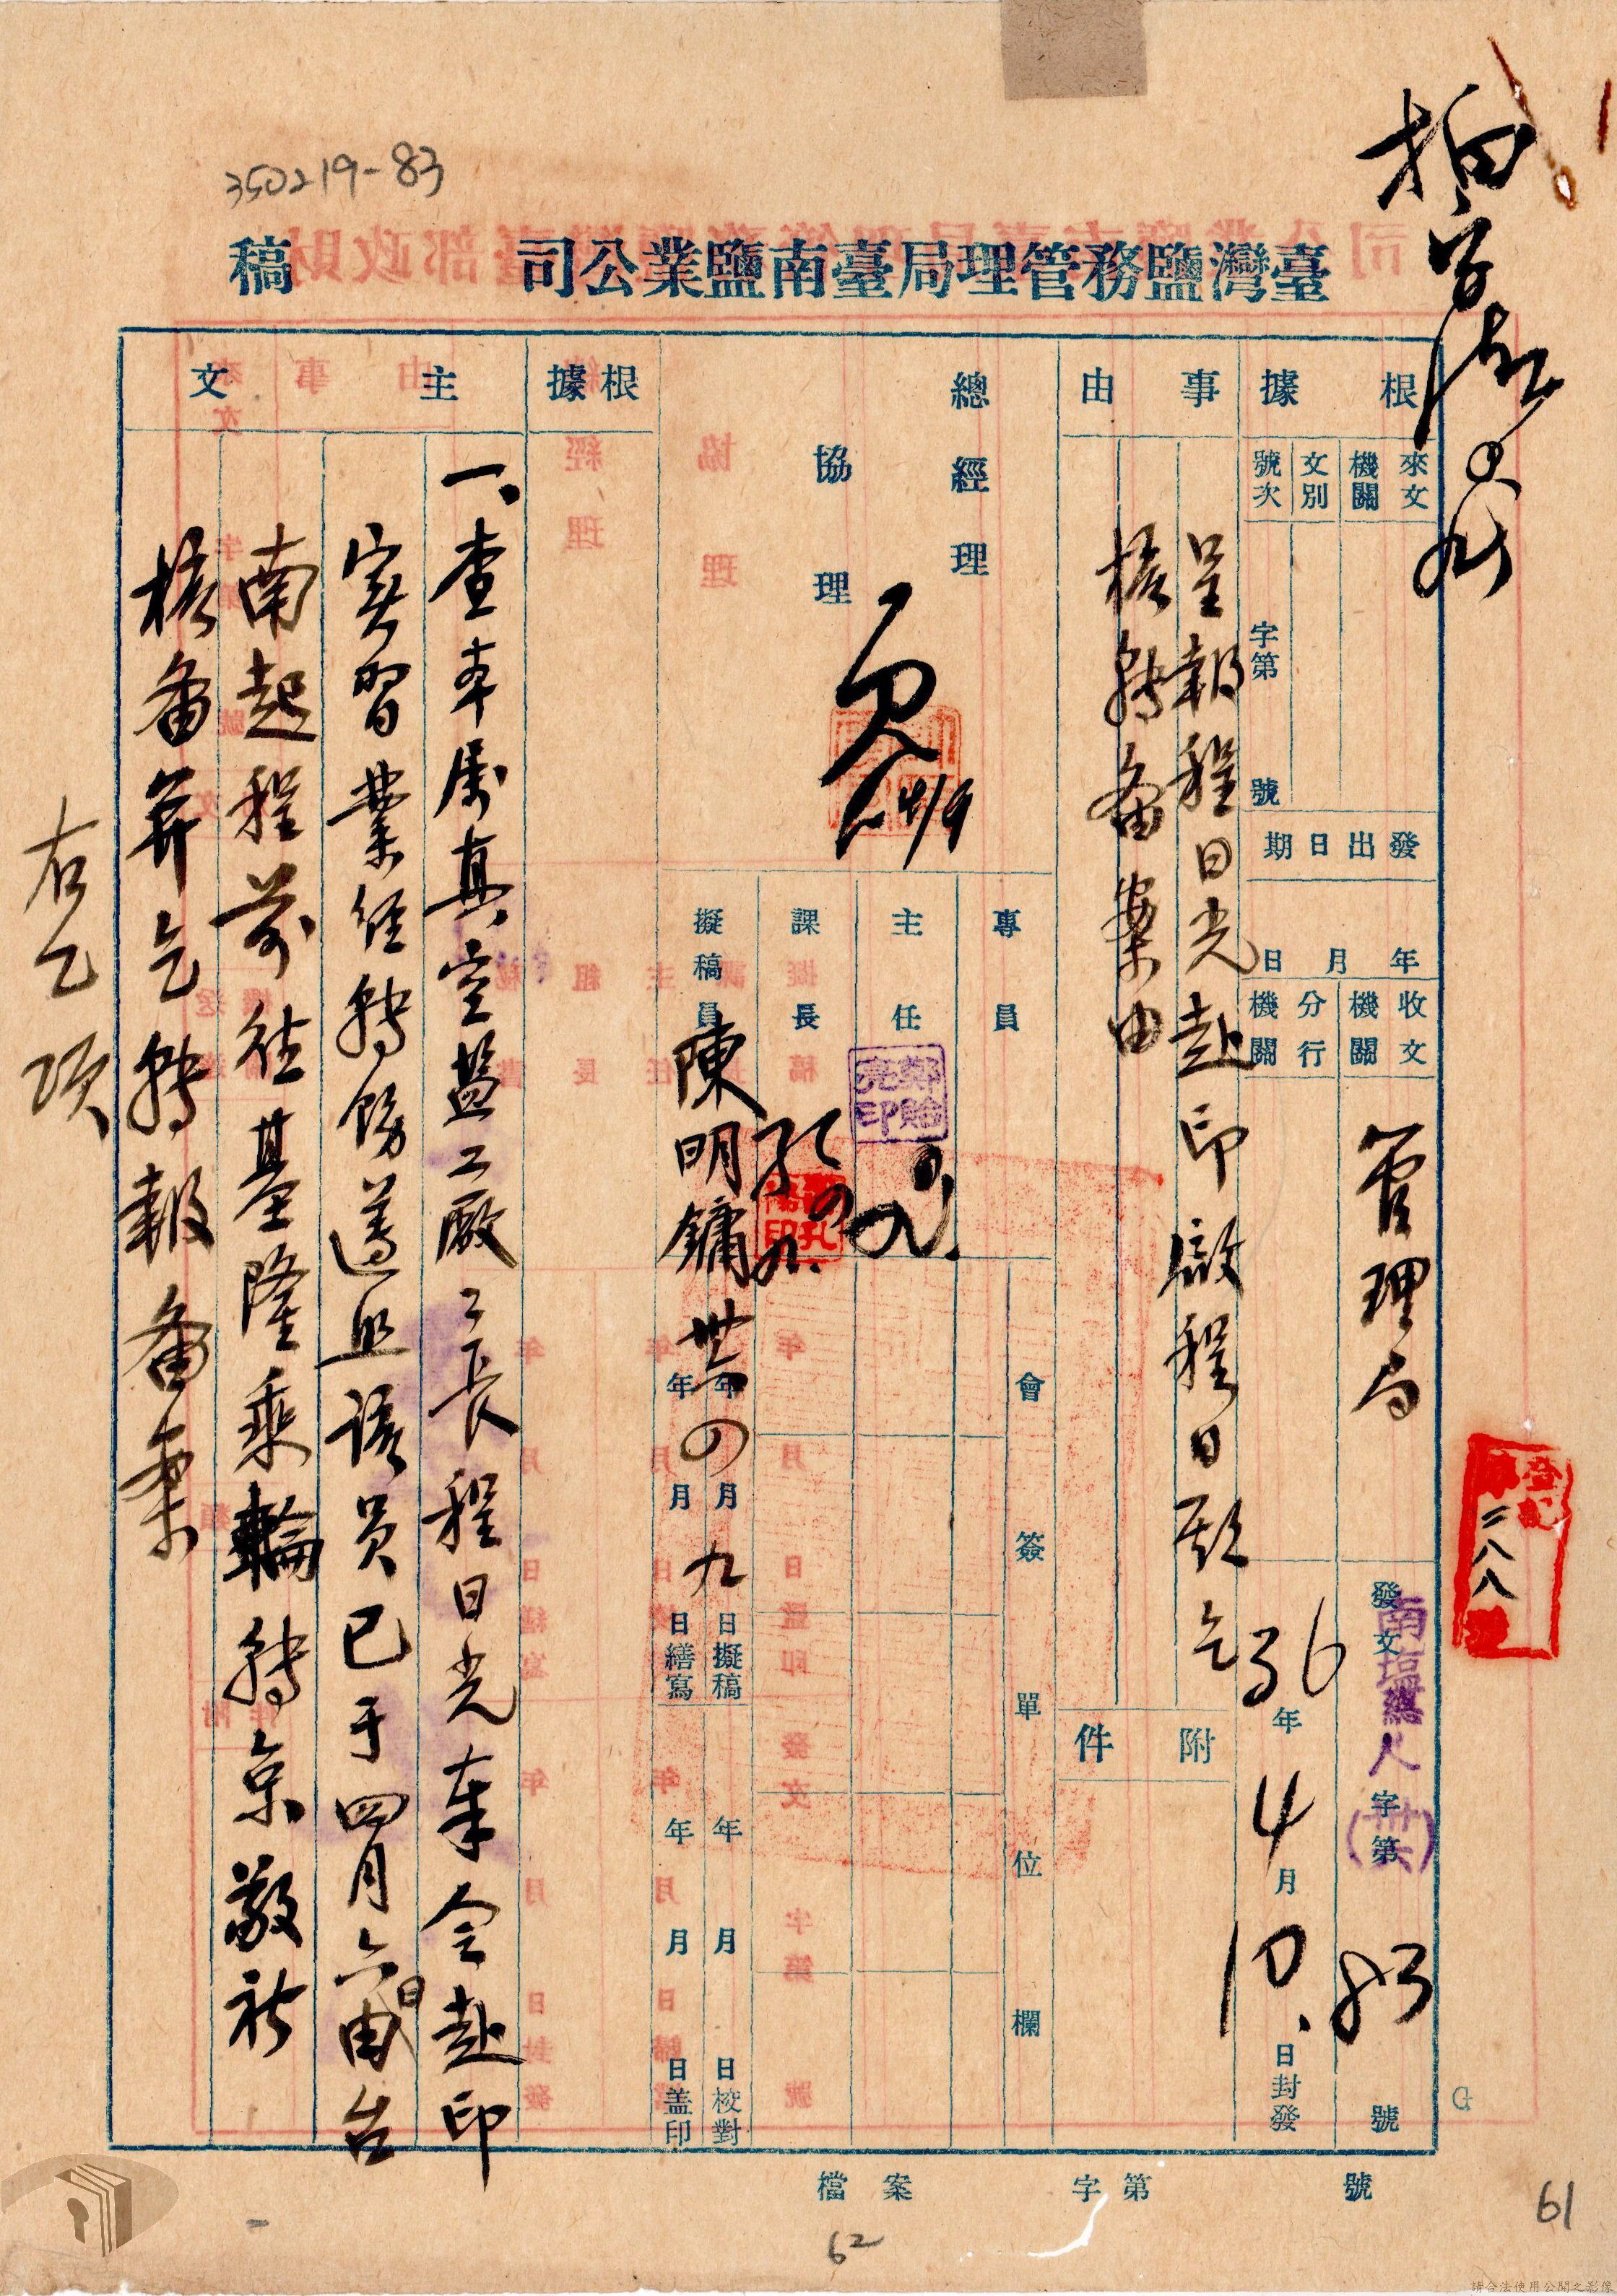 350219-83
臺灣鹽務管理局臺南鹽業公司 稿
根據
來文機關
文別
號次
字第 號
發出日期
年 月 日
收文機關
管理局
分行機關
發文
南塩總人字第
(卅六)
號
36年4月10日封發
登記
二八八
事由
呈報程日光赴印啟程日期乞
核轉備案由
附件
總經理
協理
4/9
專員
主任
鄭貽亮印
課長
擬稿員
陳明鏞
卅六年四月九日擬稿
年 月 日繕寫
年 月 日校對
年 月 日蓋印
會簽單位欄
根據
主文
一、查本屬真空鹽工廠工長程日光奉令赴印
實習業經轉飭遵照該員已于四月六日由台
南起程前往基隆乘輪轉京敬祈
核備并乞轉報備案
右乙項
檔案 字第 號
61
62
請合法使用公開之影像